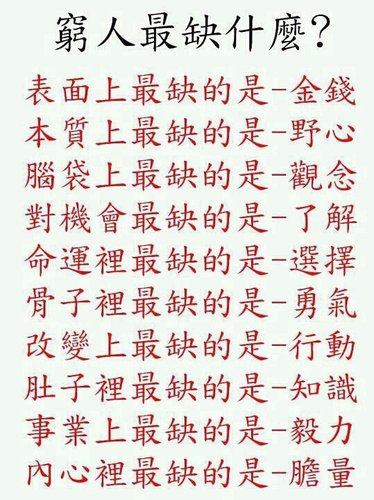 窮人最缺什麼?
表面上最缺的是-金錢
本質上最缺的是-野心
腦袋上最缺的是-觀念
對機會最缺的是-了解
命運裡最缺的是-選擇
骨子裡最缺的是-勇氣
改變上最缺的是-行動
肚子裡最缺的是-知識
事業上最缺的是-毅力
內心裡最缺的是-膽量